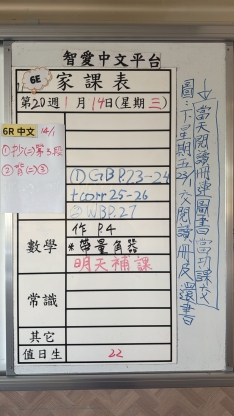 智愛中文平台
6E
家課表
第20週1月14日(星期三)
6R 中文 14/1
①抄(二)第5段
②背(二)③
① GB P.23-24
+corr 25-26
② WB P.27
數學
作 P.4
*帶量角器
明天補課
常識
其它
值日生 22
當天閱讀冊連圖書當功課交
圖:下星期五23/1交閱讀冊及還書